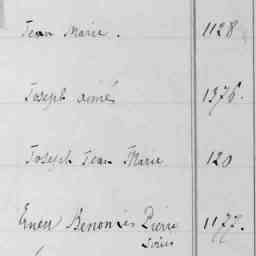 Jean Marie. 1128
Joseph aimé 1376.
Joseph Jean Marie 120
Ernest Pierre 1177.